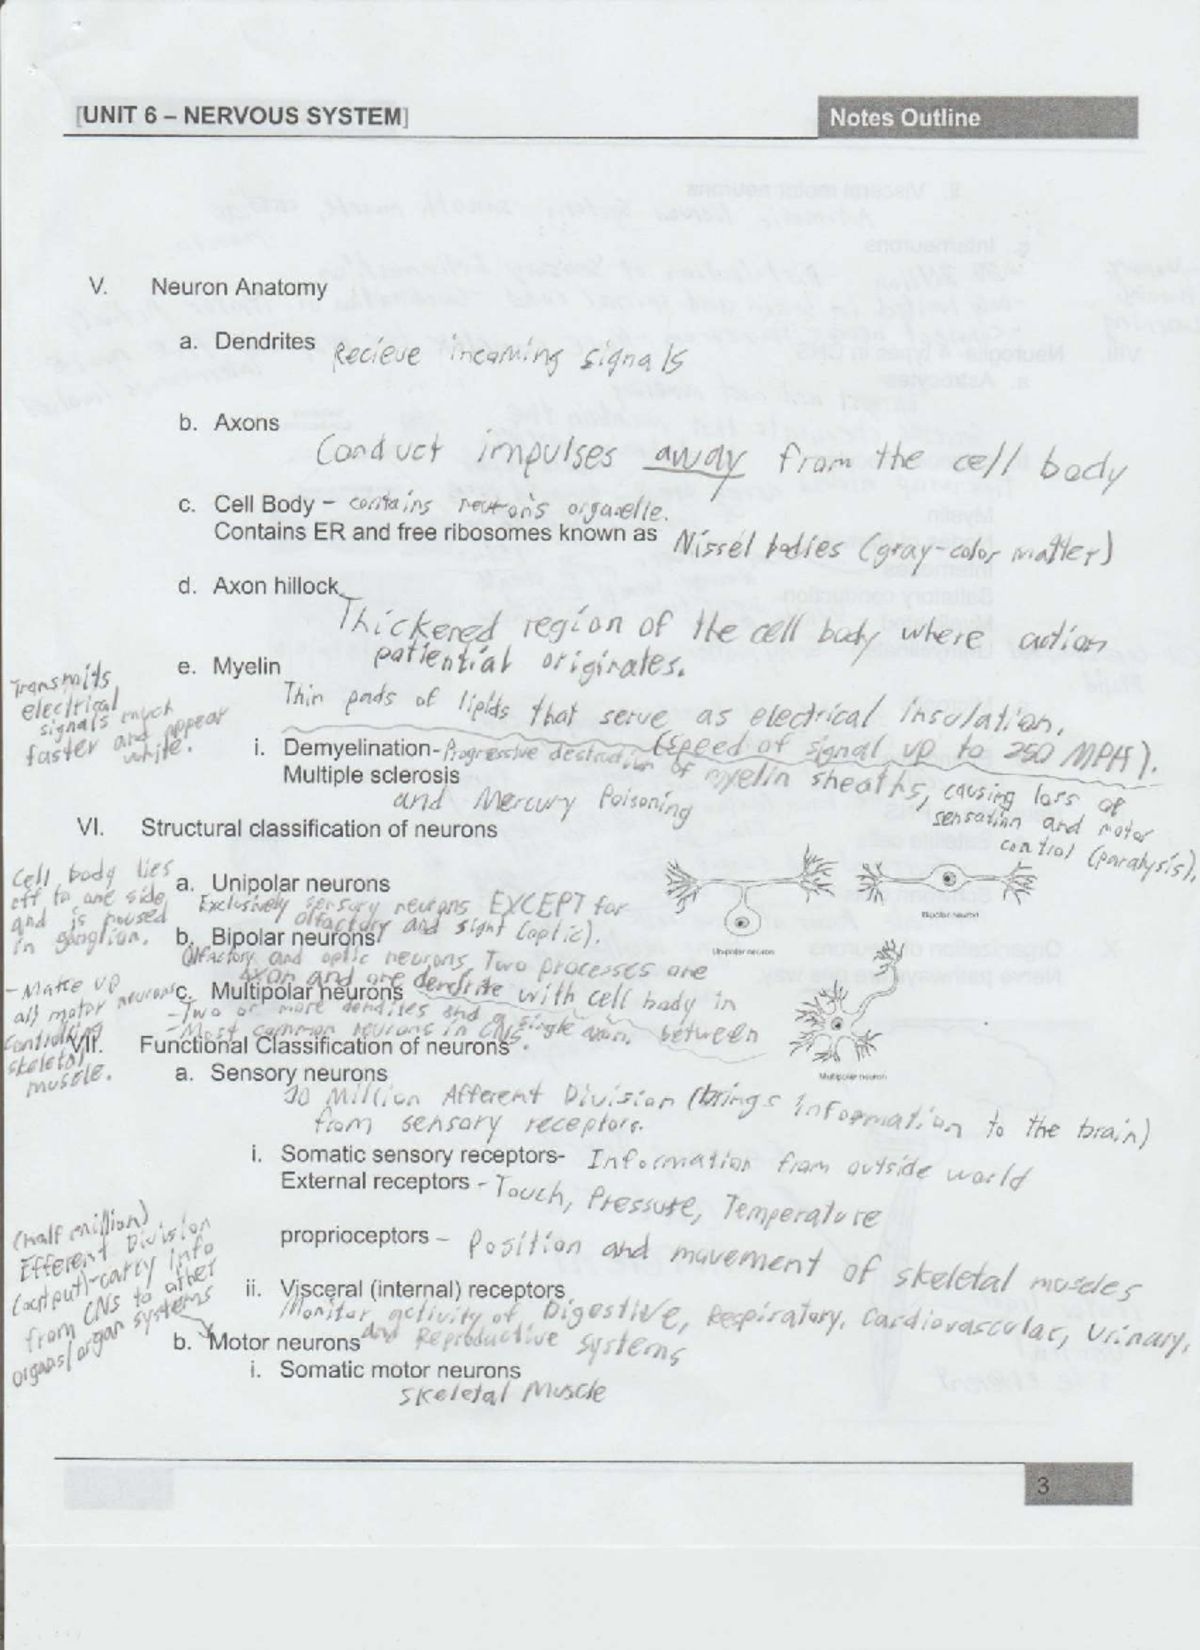 [UNIT 6 – NERVOUS SYSTEM]
Notes Outline
V. Neuron Anatomy
a. Dendrites Recieve incoming signals
b. Axons
Conduct impulses away from the cell body
c. Cell Body – contains neuron's organelle.
Contains ER and free ribosomes known as Nissel bodies (gray-color matter)
d. Axon hillock
Thickened region of the cell body where action
patiential originates.
e. Myelin
Thin pads of lipids that serve as electrical insulation.
(speed of signal up to 250 MPH).
Transmits
electrical
signals much
faster and appear
white.
i. Demyelination- Progressive destruction of myelin sheaths, causing loss of
sensation and motor
control (paralysis).
Multiple sclerosis
and Mercury Poisoning
VI. Structural classification of neurons
Cell body lies
off to one side
and is housed
in ganglion.
a. Unipolar neurons
Exclusively sensory neurons EXCEPT for
olfactory and sight (optic).
Unipolar neuron
Bipolar neuron
b. Bipolar neurons
Olfactory and optic neurons Two processes are
axon and one dendrite with cell body in
between
- Make up
all motor neurons
controlling
skeletal
muscle.
c. Multipolar neurons
- Two or more dendrites and a single axon.
- Most common neurons in CNS.
Multipolar neuron
VII. Functional Classification of neurons
a. Sensory neurons
Million Afferent Division (brings information to the brain)
from sensory receptors.
i. Somatic sensory receptors- Information from outside world
External receptors - Touch, Pressure, Temperature
proprioceptors – Position and movement of skeletal muscles
ii. Visceral (internal) receptors
Monitor activity of Digestive, Respiratory, Cardiovascular, Urinary,
and Reproductive Systems
(half million)
Efferent Division
(output)-carry info
from CNS to other
organs/organ systems
b. Motor neurons
i. Somatic motor neurons
Skeletal Muscle
3